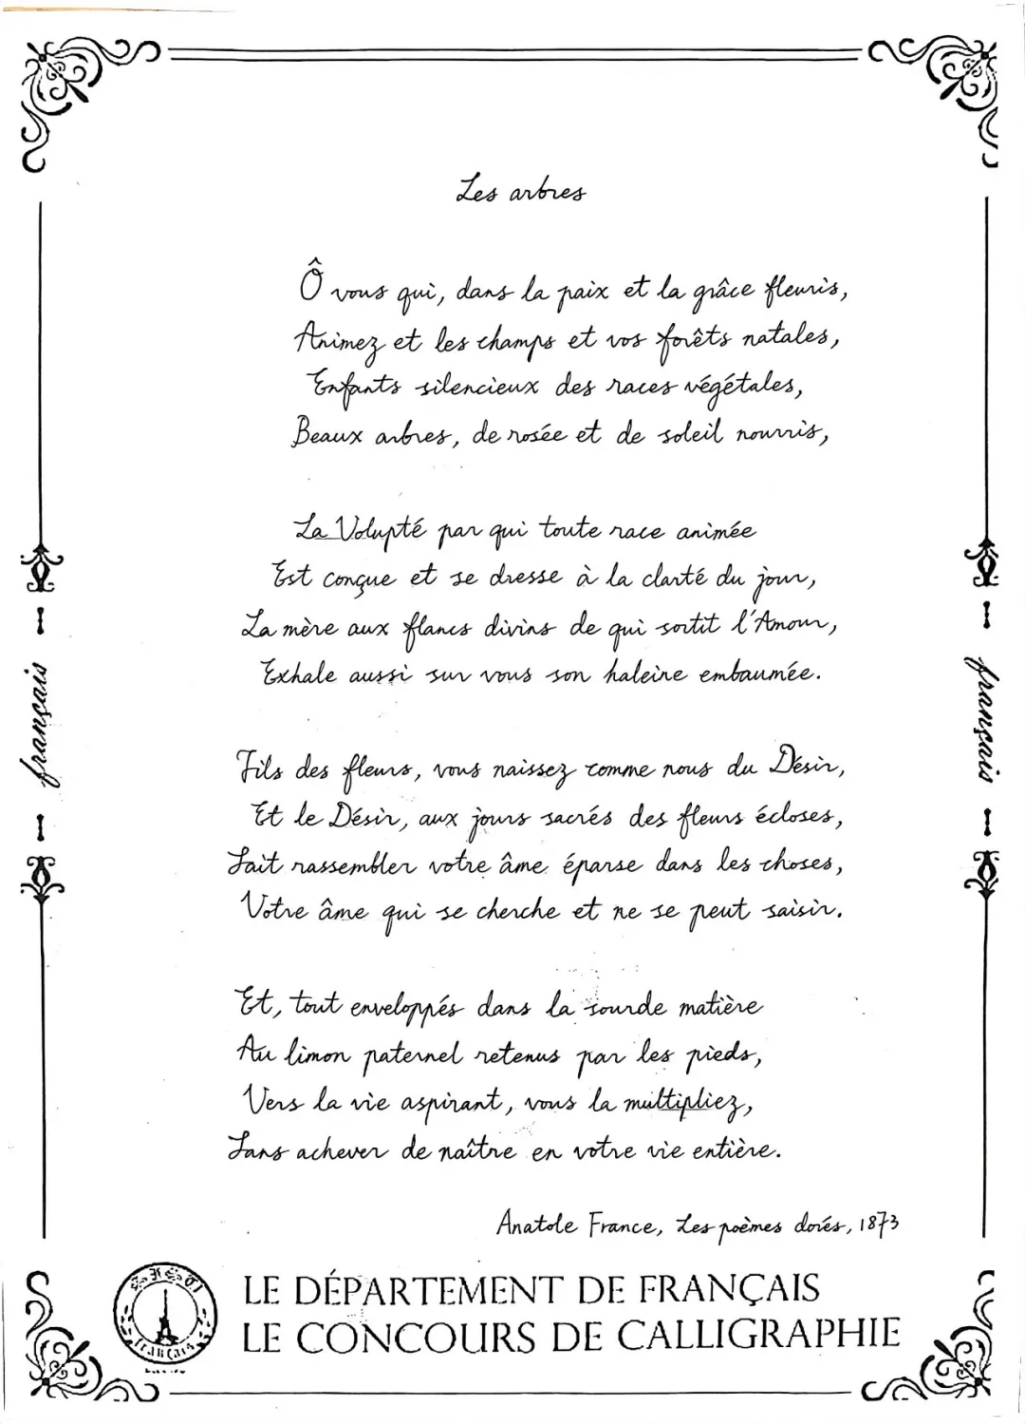 Les arbres
Ô vous qui, dans la paix et la grâce fleuris,
Animez et les champs et vos forêts natales,
Enfants silencieux des races végétales,
Beaux arbres, de rosée et de soleil nourris,
La Volupté par qui toute race animée
Est conçue et se dresse à la clarté du jour,
La mère aux flancs divins de qui sortit l'Amour,
Exhale aussi sur vous son haleine embaumée.
Fils des fleurs, vous naissez comme nous du Désir,
Et le Désir, aux jours sacrés des fleurs écloses,
Fait rassembler votre âme éparse dans les choses,
Votre âme qui se cherche et ne se peut saisir.
Et, tout enveloppés dans la sourde matière
Au limon paternel retenus par les pieds,
Vers la vie aspirant, vous la multipliez,
Sans achever de naître en votre vie entière.
Anatole France, Les poèmes dorés, 1873
français
français
français
LE DÉPARTEMENT DE FRANÇAIS
LE CONCOURS DE CALLIGRAPHIE